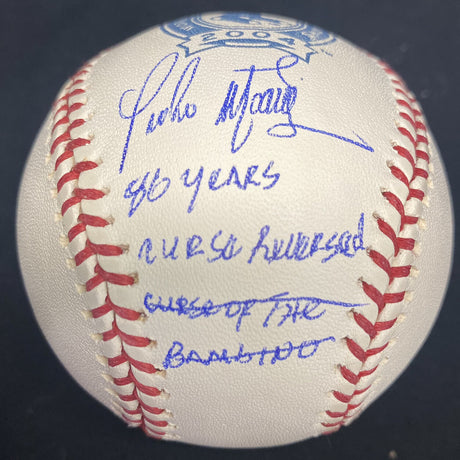 2004
Pedro Martinez
86 YEARS
CURSE Reversed
CURSE OF THE
BAMBINO